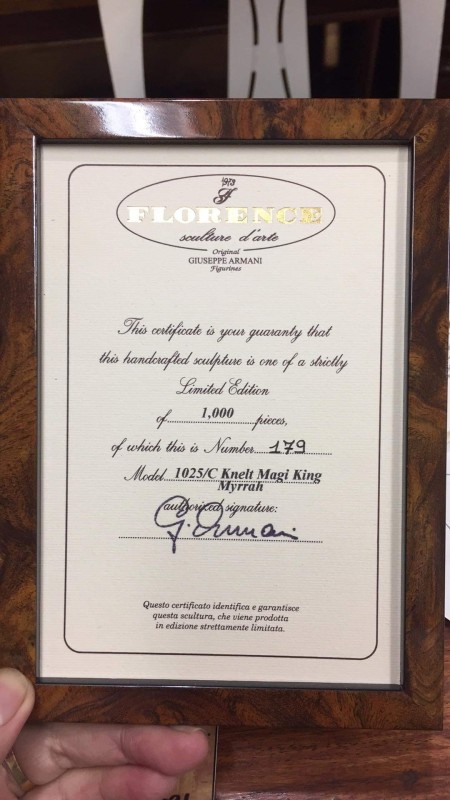 1973
FLORENCE
sculture d'arte
Original
GIUSEPPE ARMANI
Figurines
This certificate is your guaranty that
this handcrafted sculpture is one of a strictly
Limited Edition
of 1,000 pieces,
of which this is Number 179
Model 1025/C Knelt Magi King
Myrrah
(authorized signature:
G. Armani
Questo certificato identifica e garantisce
questa scultura, che viene prodotta
in edizione strettamente limitata.